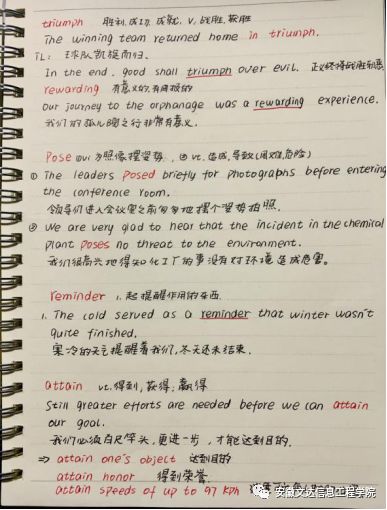 triumph 胜利.成功.成就. v. 战胜.获胜
The winning team returned home in triumph.
球队凯旋而归.
In the end, good shall triumph over evil. 正义终将战胜邪恶
rewarding 有意义的,有回报的
Our journey to the orphanage was a rewarding experience.
我们的孤儿院之行非常有意义.
Pose ①vi 为照像摆姿势, ② vt. 造成,导致(困难,危险)
① The leaders posed briefly for photographs before entering
the conference room.
领导们进入会议室之前匆匆地摆个姿势拍照.
② We are very glad to hear that the incident in the chemical
plant poses no threat to the environment.
我们很高兴地得知化工厂的事没有对环境造成危害.
reminder 1.起提醒作用的东西.
1. The cold served as a reminder that winter wasn't
quite finished.
寒冷的天气提醒着我们,冬天还未结束.
attain vt. 得到,获得,赢得
Still greater efforts are needed before we can attain
our goal.
我们必须百尺竿头,更进一步,才能达到目的.
⇒ attain one's object 达到目的
attain honor 得到荣誉
attain speeds of up to 97 kph
安徽文达信息工程学院